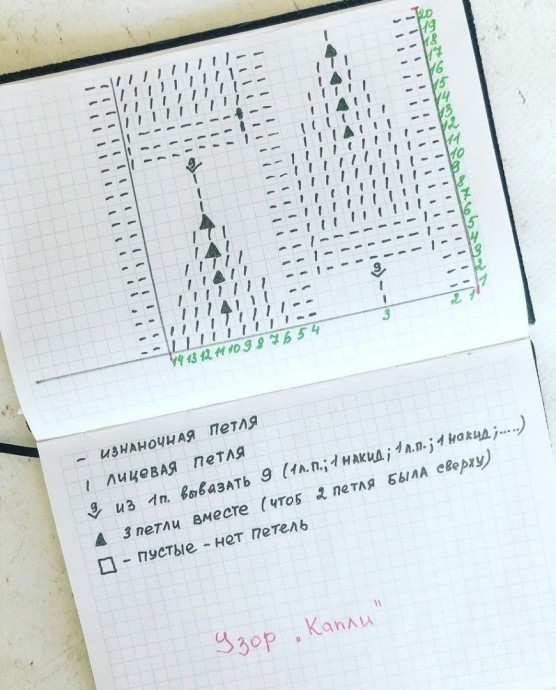 20
19
18
17
16
15
14
13
12
11
10
9
8
7
6
5
4
3
2
1
9
9
14 13 12 11 10 9 8 7 6 5 4 3 2 1
- изнаночная петля
ı лицевая петля
9 из 1п. вывязать 9 (1л.п.; 1 накид; 1л.п.; 1 накид;....)
▲ 3 петли вместе (чтоб 2 петля была сверху)
□ - пустые - нет петель
Узор „Капли"